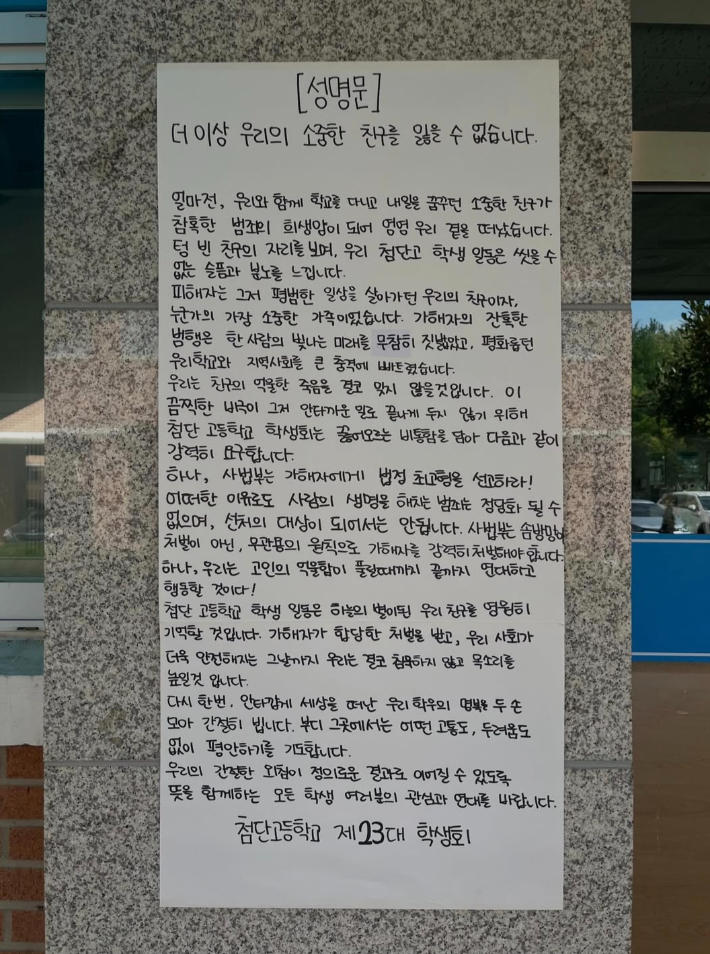 [성명문]
더 이상 우리의 소중한 친구를 잃을 수 없습니다.
얼마전, 우리와 함께 학교를 다니고 내일을 꿈꾸던 소중한 친구가
참혹한 범죄의 희생양이 되어 영영 우리 곁을 떠났습니다.
텅 빈 친구의 자리를 보며, 우리 첨단고 학생 일동은 씻을 수
없는 슬픔과 분노를 느낍니다.
피해자는 그저 평범한 일상을 살아가던 우리의 친구이자,
누군가의 가장 소중한 가족이었습니다. 가해자의 잔혹한
범행은 한 사람의 빛나는 미래를 무참히 짓밟았고, 평화롭던
우리학교와 지역사회를 큰 충격에 빠트렸습니다.
우리는 친구의 억울한 죽음을 결코 잊지 않을것입니다. 이
끔찍한 비극이 그저 안타까운 일로 끝나게 두지 않기 위해
첨단 고등학교 학생회는 끓어오르는 비통함을 담아 다음과 같이
강력히 요구합니다.
하나, 사법부는 가해자에게 법정 최고형을 선고하라!
어떠한 이유로도 사람의 생명을 해치는 범죄는 정당화 될 수
없으며, 선처의 대상이 되어서는 안됩니다. 사법부는 솜방망이
처벌이 아닌, 무관용의 원칙으로 가해자를 강력히 처벌해야 합니다.
하나, 우리는 고인의 억울함이 풀릴때까지 끝까지 연대하고
행동할 것이다!
첨단 고등학교 학생 일동은 하늘의 별이된 우리 친구를 영원히
기억할 것입니다. 가해자가 합당한 처벌을 받고, 우리 사회가
더욱 안전해지는 그날까지 우리는 결코 침묵하지 않고 목소리를
높일것 입니다.
다시 한번, 안타깝게 세상을 떠난 우리 학우의 명복을 두 손
모아 간절히 빕니다. 부디 그곳에서는 어떤 고통도, 두려움도
없이 평안하기를 기도합니다.
우리의 간절한 외침이 정의로운 결과로 이어질 수 있도록
뜻을 함께하는 모든 학생 여러분의 관심과 연대를 바랍니다.
첨단고등학교 제23대 학생회